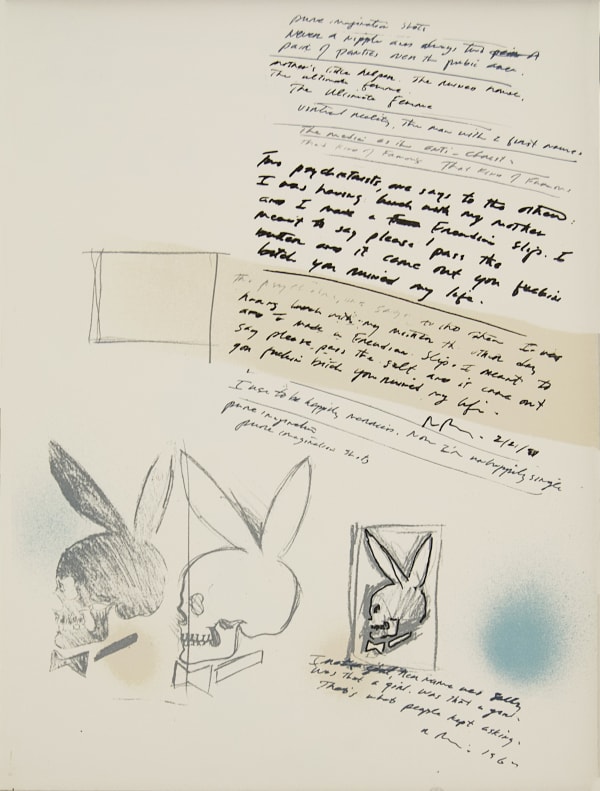 pure imagination shots
Never a nipple and always two
pair of panties over the pubic area.
mother's little helper. The nurses home.
The ultimate femme.
The ultimate femme
virtual reality, The man with 2 first names.
The median as the anti-christ.
That kind of Famous That kind of Famous.
Two psychiatrists, one says to the other:
I was having lunch with my mother
and I made a Freudian slip. I
meant to say please pass the
butter and it came out you fuckin
bitch you ruined my life.
Two psychiatrists, one says to the other I was
having lunch with my mother the other day
and I made a Freudian slip. I meant to
say please pass the salt and it came out
you fuckin bitch you ruined my life.
2/21/91
I use to be happily married. Now I'm unhappily single
pure imagination
pure imagination shots
I her name was Sally
was that a girl. was that a girl.
That's what people kept asking.